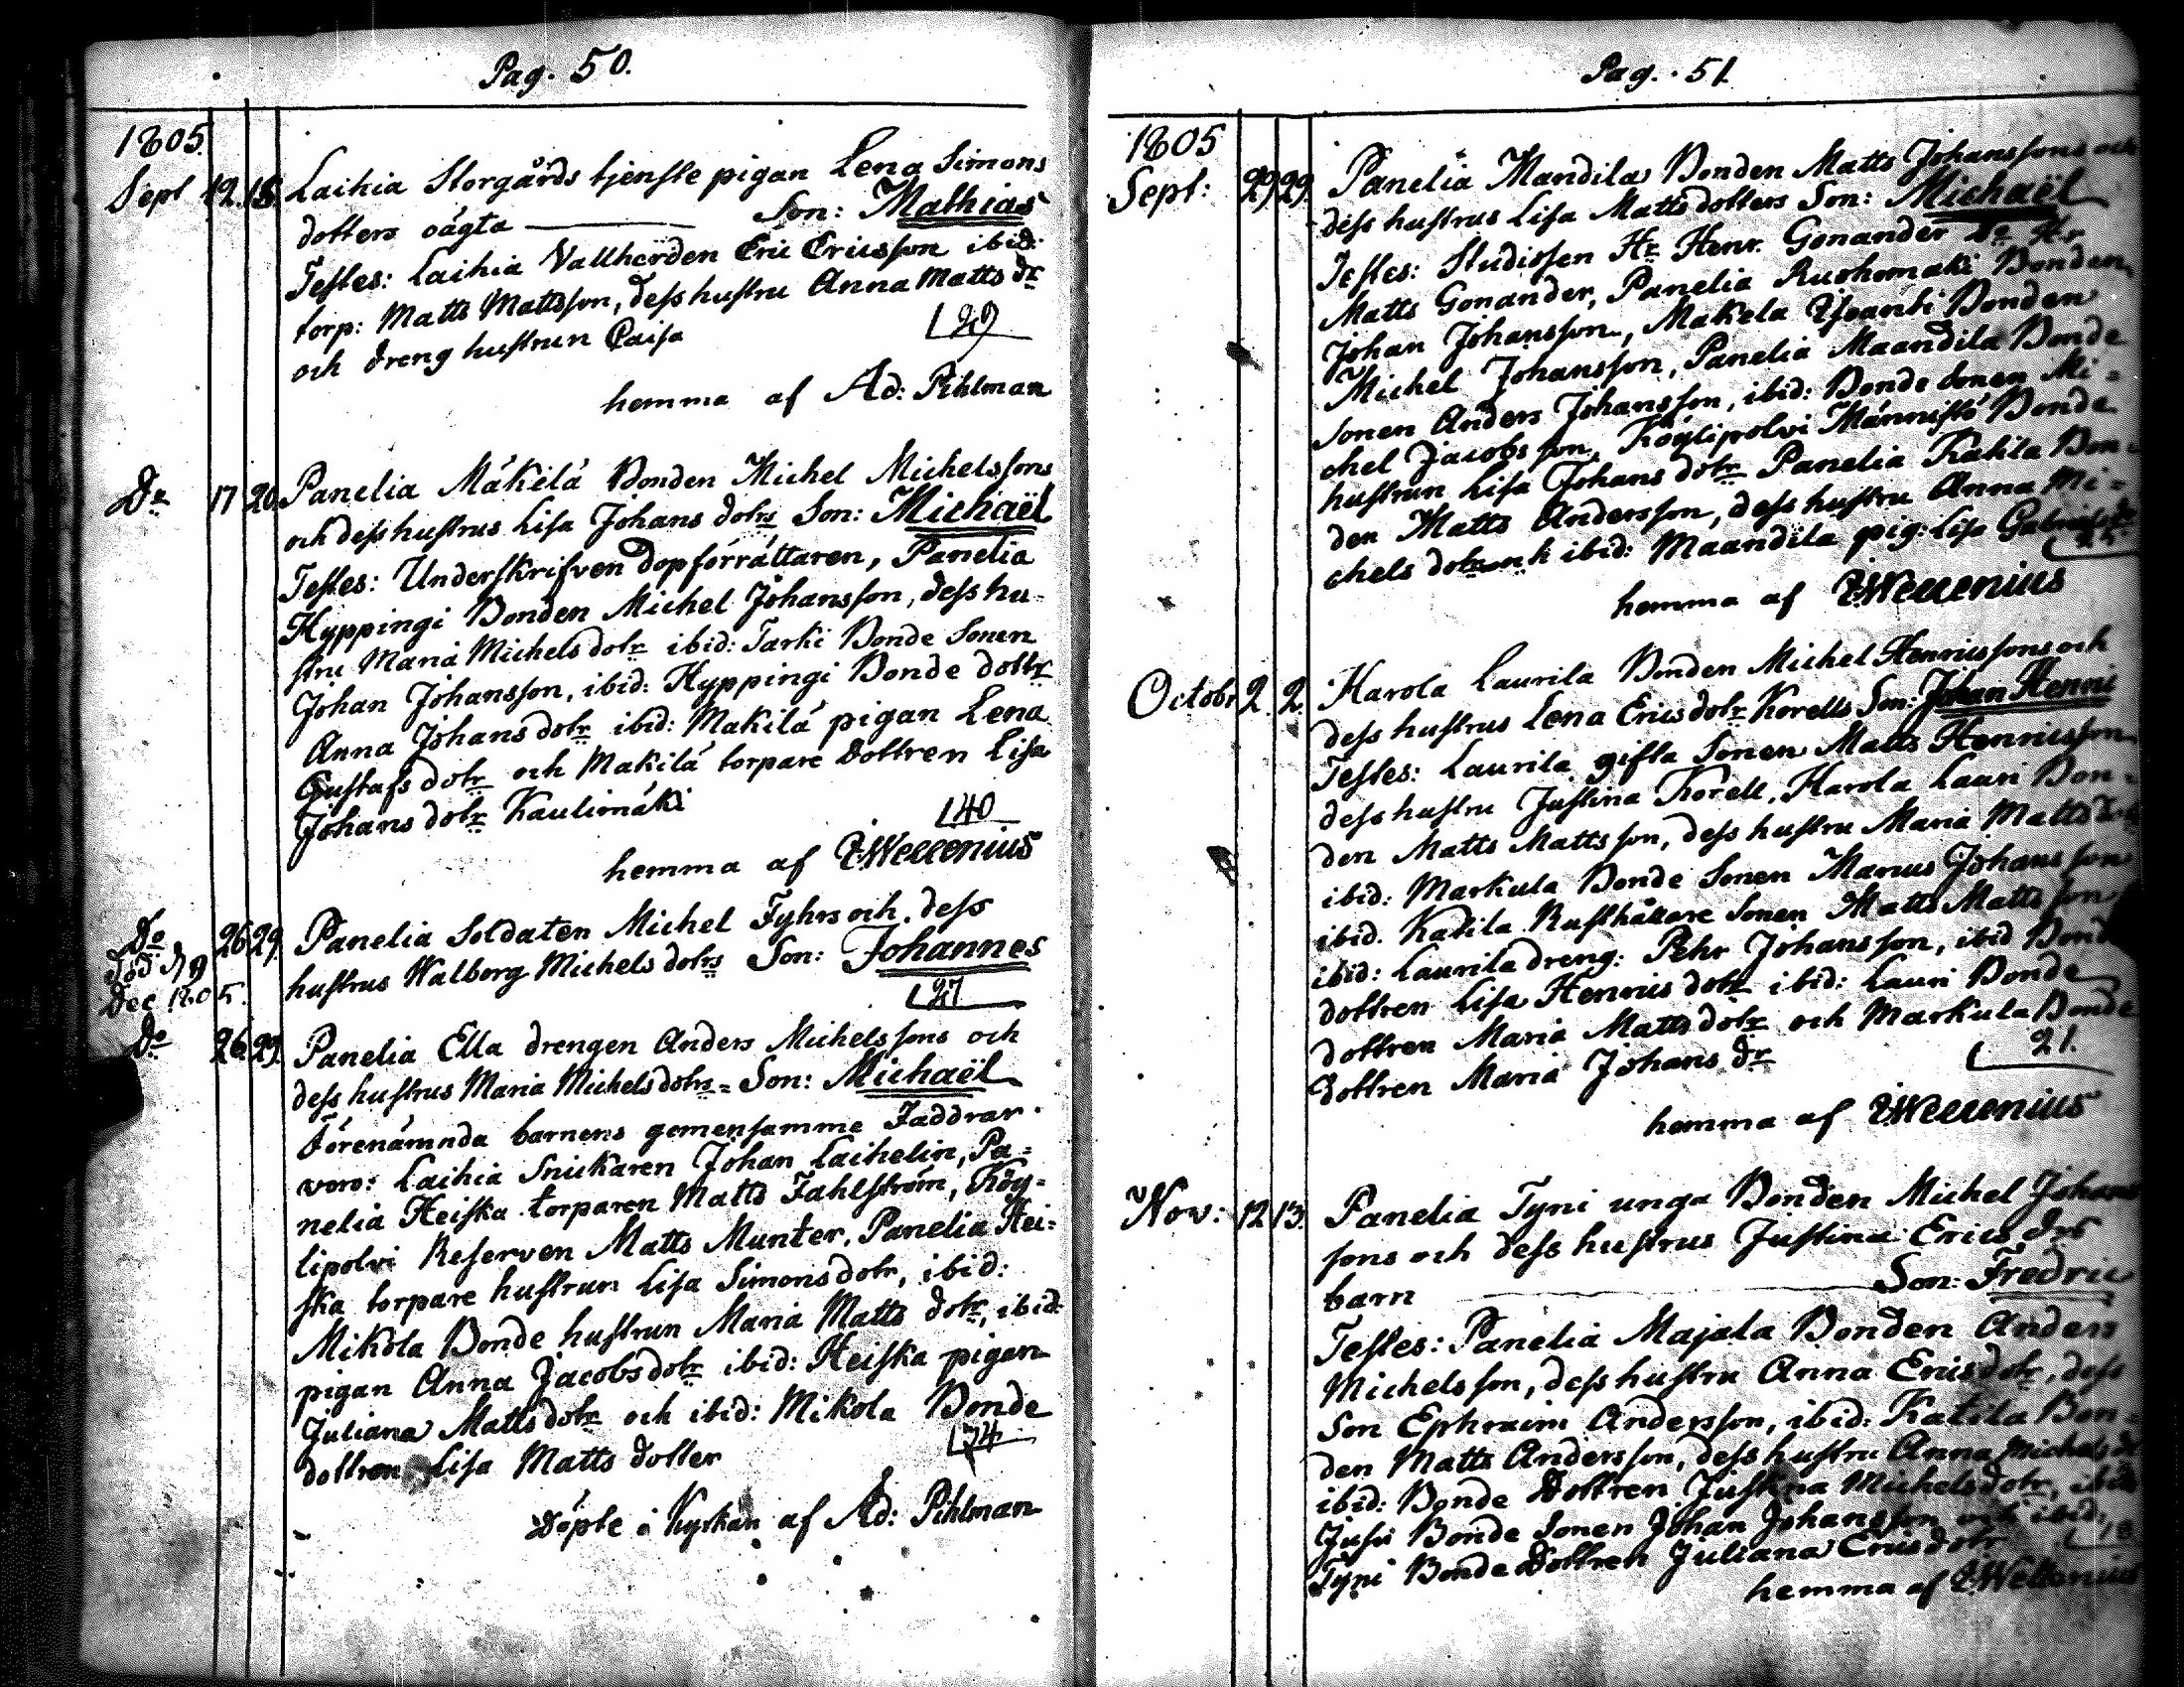 Pag. 50.
1805.
Sept 12. 15. Laihia Storgårds tjenste pigan Lena Simons
dotters oägta Son: Mathias
Testes: Laihia Vallherden Eric Ericsson ibid:
torp: Matts Mattsson, dess hustru Anna Matts dr
och dreng hustrun Caisa
29
hemma af Ad: Pihlman
Do 17 20. Panelia Mäkilä Bonden Michel Michelssons
och dess hustrus Lisa Johans dotrs Son: Michaël
Testes: Underskrifven dopförrättaren, Panelia
Hyppingi Bonden Michel Johansson, dess hu-
stru Maria Michels dotr ibid: Tarki Bonde Sonen
Johan Johansson, ibid: Hyppingi Bonde dottr
Anna Johans dotr ibid: Makilä pigan Lena
Gustafs dotr och Makilä torpare dottren Lisa
Johans dotr Kaulimäki
40
hemma af
Do 26 29. Panelia Soldaten Michel Fyhrs och dess
Död d 9
hustrus Walborg Michels dotrs Son: Johannes
Dec 1805.
27
Do 26. 29. Panelia Ella drengen Anders Michelssons och
dess hustrus Maria Michels dotrs = Son: Michaël
Förenämnda barnens gemensamme Faddrar
voro: Laihia Snickaren Johan Laihelin, Pa=
nelia Heiska torparen Matts Fahlström, Köy=
lipolvi Reserven Matts Munter, Panelia Hei=
ska torpare hustrun Lisa Simons dotr, ibid:
Mikola Bonde hustrun Maria Matts dotr, ibid:
pigan Anna Jacobs dotr ibid: Heiska pigan
Juliana Matts dotr och ibid: Mikola Bonde
dottren Lisa Matts dotter
74
Döpte i Kyrkan af Ad: Pihlman
Pag. 51
1805
Sept: 29 29. Panelia Mandila Bonden Matts Johanssons och
dess hustrus Lisa Matts dotters Son: Michaël
Testes: Studiosen Hr Henr. Gonander Do Hr
Matts Gonander, Panelia Ruohomäki Bonden
Johan Johansson, Makela Bonden
Michel Johansson, Panelia Maandila Bonde
Sonen Anders Johansson, ibid: Bonde Sonen Mi=
chel Jacobsson, Köylipolvi Männistö Bonde
hustrun Lisa Johans dotr Panelia Katila Bon=
den Matts Andersson, dess hustru Anna Mi=
chels dotr och ibid: Maandila pig: Lisa Gabriels dr
hemma af
Octobr 2. 2. Harola Laurila Bonden Michel Henricssons och
dess hustrus Lena Erics dotr Korells Son: Johan Henric
Testes: Laurila gifta Sonen Matts Henricsson
dess hustru Justina Korell, Harola Lauri Bon=
den Matts Mattsson, dess hustru Maria Matts dotr
ibid: Markula Bonde Sonen Marcus Johansson
ibid. Katila Rusthållare Sonen Matts Mattsson
ibid: Laurila dreng: Pehr Johansson, ibid Bonde
dottren Lisa Henrics dotr ibid: Lauri Bonde
dottren Maria Matts dotr och Markula Bonde
dottren Maria Johans dr
21.
hemma af
Nov: 12 13. Panelia Tyni unga Bonden Michel Johans
sons och dess hustrus Justina Erics drs
barn Son: Fredric
Testes: Panelia Majala Bonden Anders
Michelsson, dess hustru Anna Erics dotr, dess
Son Ephraim Andersson, ibid: Katila Bon=
den Matts Andersson, dess hustru Anna Michels dr
ibid: Bonde Dottren Justina Michels dotr, ibid
Jussi Bonde Sonen Johan Johansson och ibid:
Tyni Bonde Dottren Juliana Erics dotr
hemma af